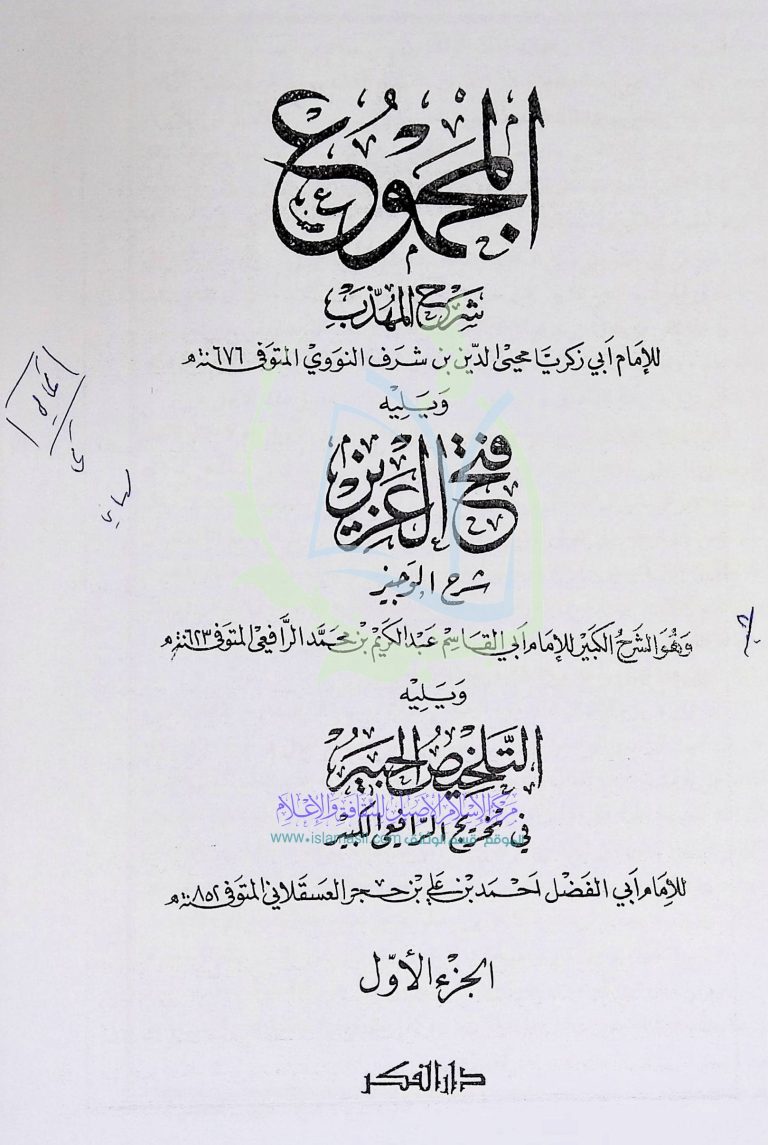 المجموع
شرح المهذب
للإمام أبي زكريا محيى الدين بن شرف النووي المتوفى سنة ٦٧٦ هـ
ويليه
فتح العزيز
شرح الوجيز
وهو الشرح الكبير للإمام أبي القاسم عبد الكريم بن محمد الرافعي المتوفى سنة ٦٢٣ هـ
ويليه
التلخيص الحبير
مركز الإسلام الأصيل للثقافة والإعلام
في تخريج الرافعي الكبير
www.islamasil.com
للإمام أبي الفضل أحمد بن علي بن حجر العسقلاني المتوفى سنة ٨٥٢ هـ
الجزء الأول
دار الفكر